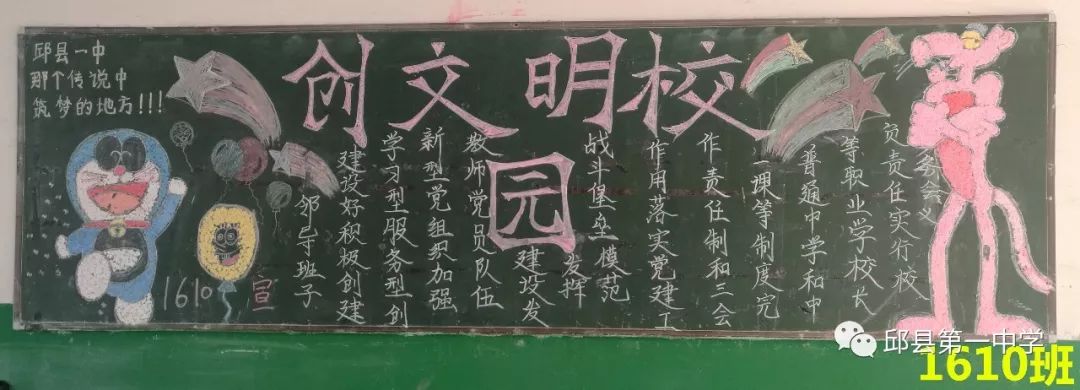 邱县一中
那个传说中
筑梦的地方!!!
创文明校
园
邻导班子
建设好积极创建
学习型服务型创
新型党组织加强
教师党员队伍
建设发
发挥
战斗堡垒模范
作用落实党建工
作责任制和三会
一课等制度完
普通中学和中
等职业学校长
负责任实行校
务会议
1610 宣
邱县第一中学
1610班